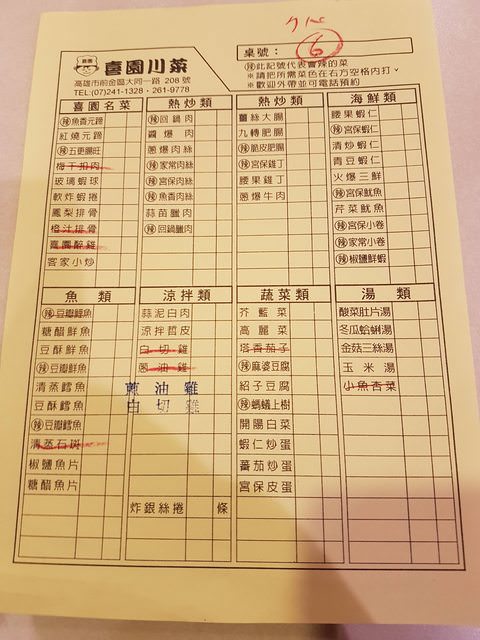 喜園
喜園川菜
高雄市前金區大同一路 208 號
TEL:(07)241-1328・261-9778
桌號：
6
辣此記號代表會辣的菜
※請把所需菜色在右方空格內打ˇ
※歡迎外帶並可電話預約
喜園名菜
辣魚香元蹄
紅燒元蹄
辣五更腸旺
梅干扣肉
玻璃蝦球
軟炸蝦捲
鳳梨排骨
橙汁排骨
喜園醉雞
客家小炒
熱炒類
辣回鍋肉
醬爆肉
蔥爆肉絲
辣家常肉絲
辣宮保肉絲
辣魚香肉絲
蒜苗臘肉
辣回鍋臘肉
熱炒類
薑絲大腸
九轉肥腸
辣脆皮肥腸
辣宮保雞丁
腰果雞丁
蔥爆牛肉
海鮮類
腰果蝦仁
辣宮保蝦仁
清炒蝦仁
青豆蝦仁
火爆三鮮
辣宮保魷魚
芹菜魷魚
辣宮保小卷
辣家常小卷
辣椒鹽鮮蝦
魚類
辣豆瓣鮮魚
糖醋鮮魚
豆酥鮮魚
清蒸鱈魚
豆酥鱈魚
辣豆瓣鱈魚
清蒸石斑
椒鹽魚片
糖醋魚片
涼拌類
蒜泥白肉
涼拌晢皮
白切雞
蔥油雞
蔥油雞
白切雞
炸銀絲捲 條
蔬菜類
芥藍菜
高麗菜
塔香茄子
辣麻婆豆腐
紹子豆腐
辣螞蟻上樹
開陽白菜
蝦仁炒蛋
蕃茄炒蛋
宮保皮蛋
湯類
酸菜肚片湯
冬瓜蛤蜊湯
金菇三絲湯
玉米湯
小魚杏菜